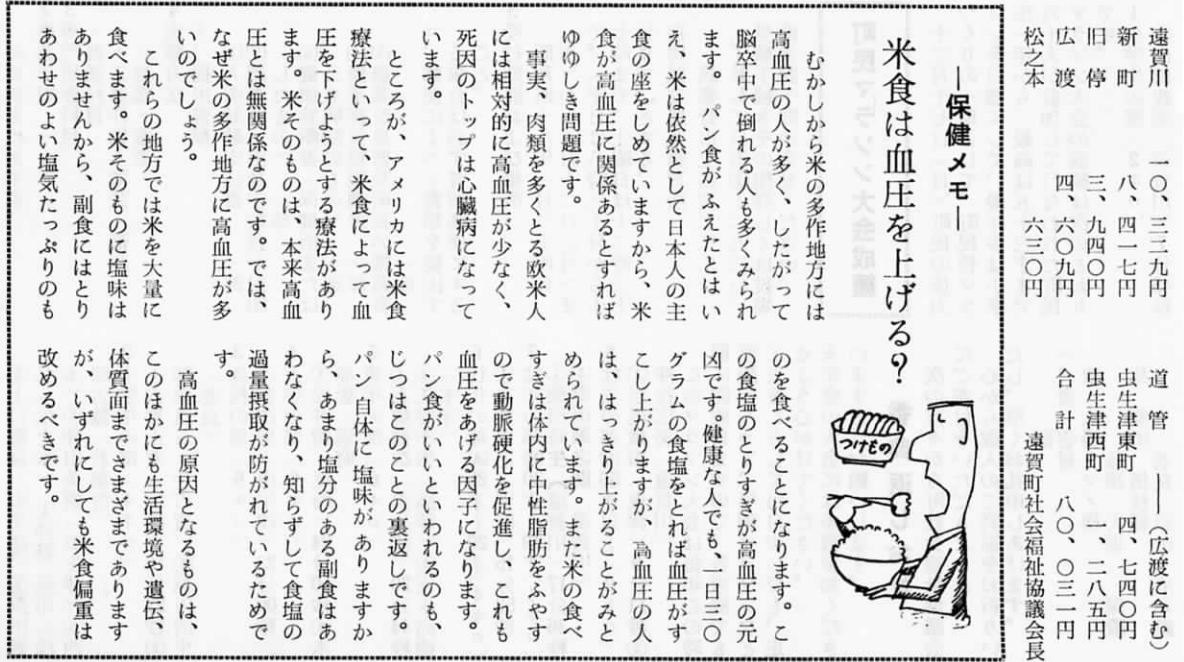 遠賀川 一〇、三一九円
新町 八、四一七円
旧停 三、九四〇円
広渡 四、六〇九円
松之本 六三〇円
道管 ――（広渡に含む）
虫生津東町 四、七四〇円
虫生津西町 一、二八五円
合計 八〇、〇三一円
遠賀町社会福祉協議会長
―保健メモ―
米食は血圧を上げる？
つけもの
むかしから米の多作地方には
高血圧の人が多く、したがって
脳卒中で倒れる人も多くみられ
ます。パン食がふえたとはい
え、米は依然として日本人の主
食の座をしめていますから、米
食が高血圧に関係あるとすれば
ゆゆしき問題です。
事実、肉類を多くとる欧米人
には相対的に高血圧が少なく、
死因のトップは心臓病になって
います。
ところが、アメリカには米食
療法といって、米食によって血
圧を下げようとする療法があり
ます。米そのものは、本来高血
圧とは無関係なのです。では、
なぜ米の多作地方に高血圧が多
いのでしょう。
これらの地方では米を大量に
食べます。米そのものに塩味は
ありませんから、副食にはとり
あわせのよい塩気たっぷりのも
のを食べることになります。こ
の食塩のとりすぎが高血圧の元
凶です。健康な人でも、日三〇
グラムの食塩をとれば血圧がす
こし上がりますが、高血圧の人
は、はっきり上がることがみと
められています。また米の食べ
すぎは体内に中性脂肪をふやす
ので動脈硬化を促進し、これも
血圧をあげる因子になります。
パン食がいいといわれるのも、
じつはこのことの裏返しです。
パン自体に塩味がありますか
ら、あまり塩分のある副食はあ
わなくなり、知らずして食塩の
過量摂取が防がれているためで
す。
高血圧の原因となるものは、
このほかにも生活環境や遺伝、
体質面までさまざまであります
が、いずれにしても米食偏重は
改めるべきです。